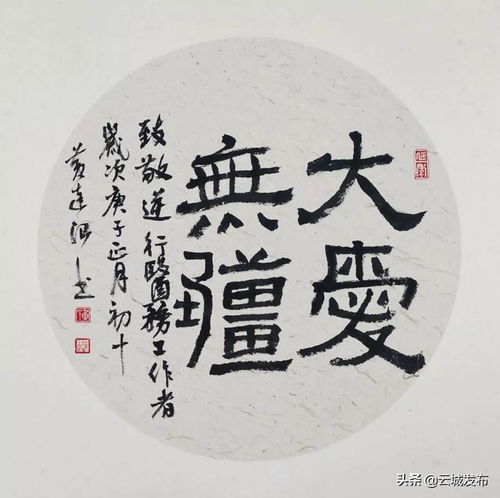 大愛
無疆
致敬逆行醫務工作者
歲次庚子正月初十
黃達書
头条 @云城发布